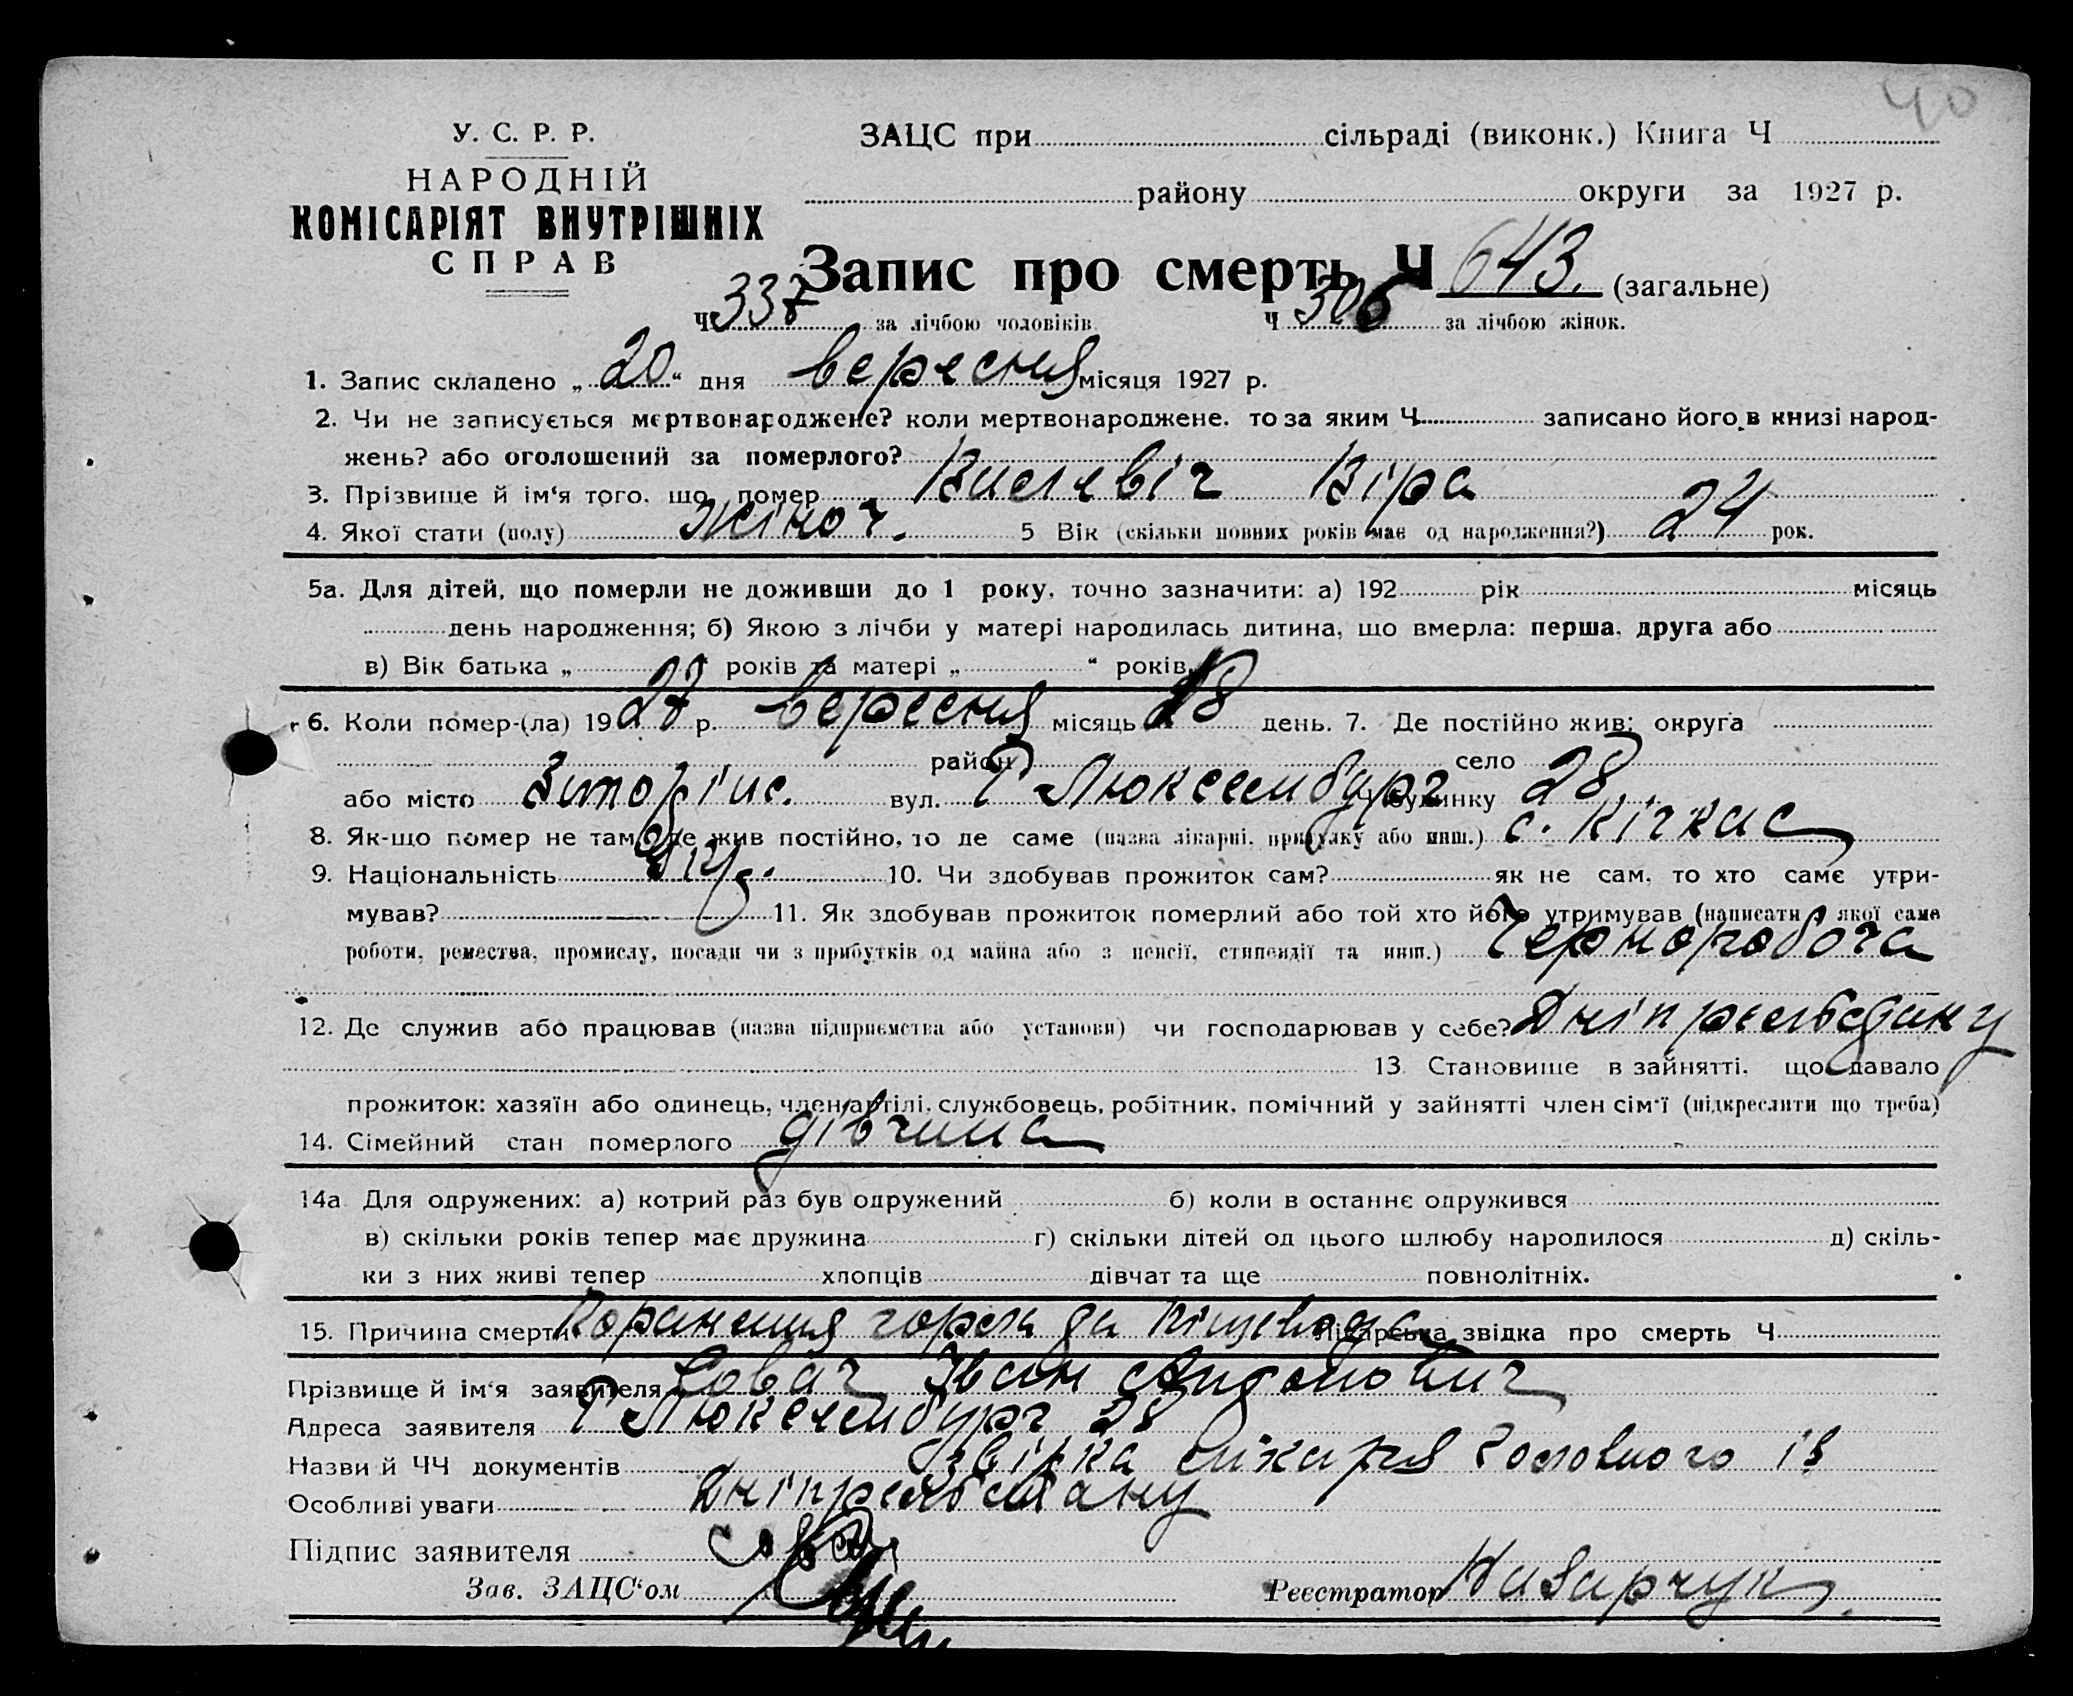 40
У. С. Р. Р.
НАРОДНІЙ
КОМІСАРІЯТ ВНУТРІШНІХ
СПРАВ
ЗАЦС при сільраді (виконк.) Книга Ч
району округи за 1927 р.
Запис про смерть Ч 643. (загальне)
Ч 337 за лічбою чоловіків Ч 306 за лічбою жінок.
1. Запис складено „ 20 “ дня вересня місяця 1927 р.
2. Чи не записується мертвонароджене? коли мертвонароджене. то за яким Ч записано його в книзі народ-
жень? або оголошений за померлого?
3. Прізвище й ім‘я того. що помер Віра
4. Якої стати (полу) жіноч. 5 Вік (скільки повних років має од народження?) 24 рок.
5а. Для дітей, що померли не доживши до 1 року, точно зазначити: а) 192 рік місяць
день народження; б) Якою з лічби у матері народилась дитина, що вмерла: перша, друга або
в) Вік батька „ “ років та матері „ “ років.
6. Коли помер-(ла) 1927 р. вересня місяць 18 день. 7. Де постійно жив: округа
район село
або місто вул. Р Люксембург Ч будинку 28
8. Як-що помер не там, де жив постійно, то де саме (назва лікарні, притулку або инш.) с. Кічкас
9. Національність 10. Чи здобував прожиток сам? як не сам, то хто саме утри-
мував? 11. Як здобував прожиток померлий або той хто його утримував (написати з якої саме
роботи, ремества, промислу, посади чи з прибутків од майна або з пенсії, стипендії та инш.) Чорноробоча
12. Де служив або працював (назва підприємства або установи) чи господарював у себе? Дніпрельстану
13 Становище в зайнятті, що давало
прожиток: хазяїн або одинець, член артілі, службовець, робітник, помічний у зайнятті член сім‘ї (підкреслити що треба)
14. Сімейний стан померлого дівчина
14а Для одружених: а) котрий раз був одружений б) коли в останнє одружився
в) скільки років тепер має дружина г) скільки дітей од цього шлюбу народилося д) скіль-
ки з них живі тепер хлопців дівчат та ще повнолітніх.
15. Причина смерти горла та Лікарська звідка про смерть Ч
Прізвище й ім‘я заявителя Іван
Адреса заявителя Р Люксембург 28
Назви й ЧЧ документів лікаря головного із
Особливі уваги Дніпрельстану
Підпис заявителя
Зав. ЗАЦС‘ом Реєстратор Назарчук